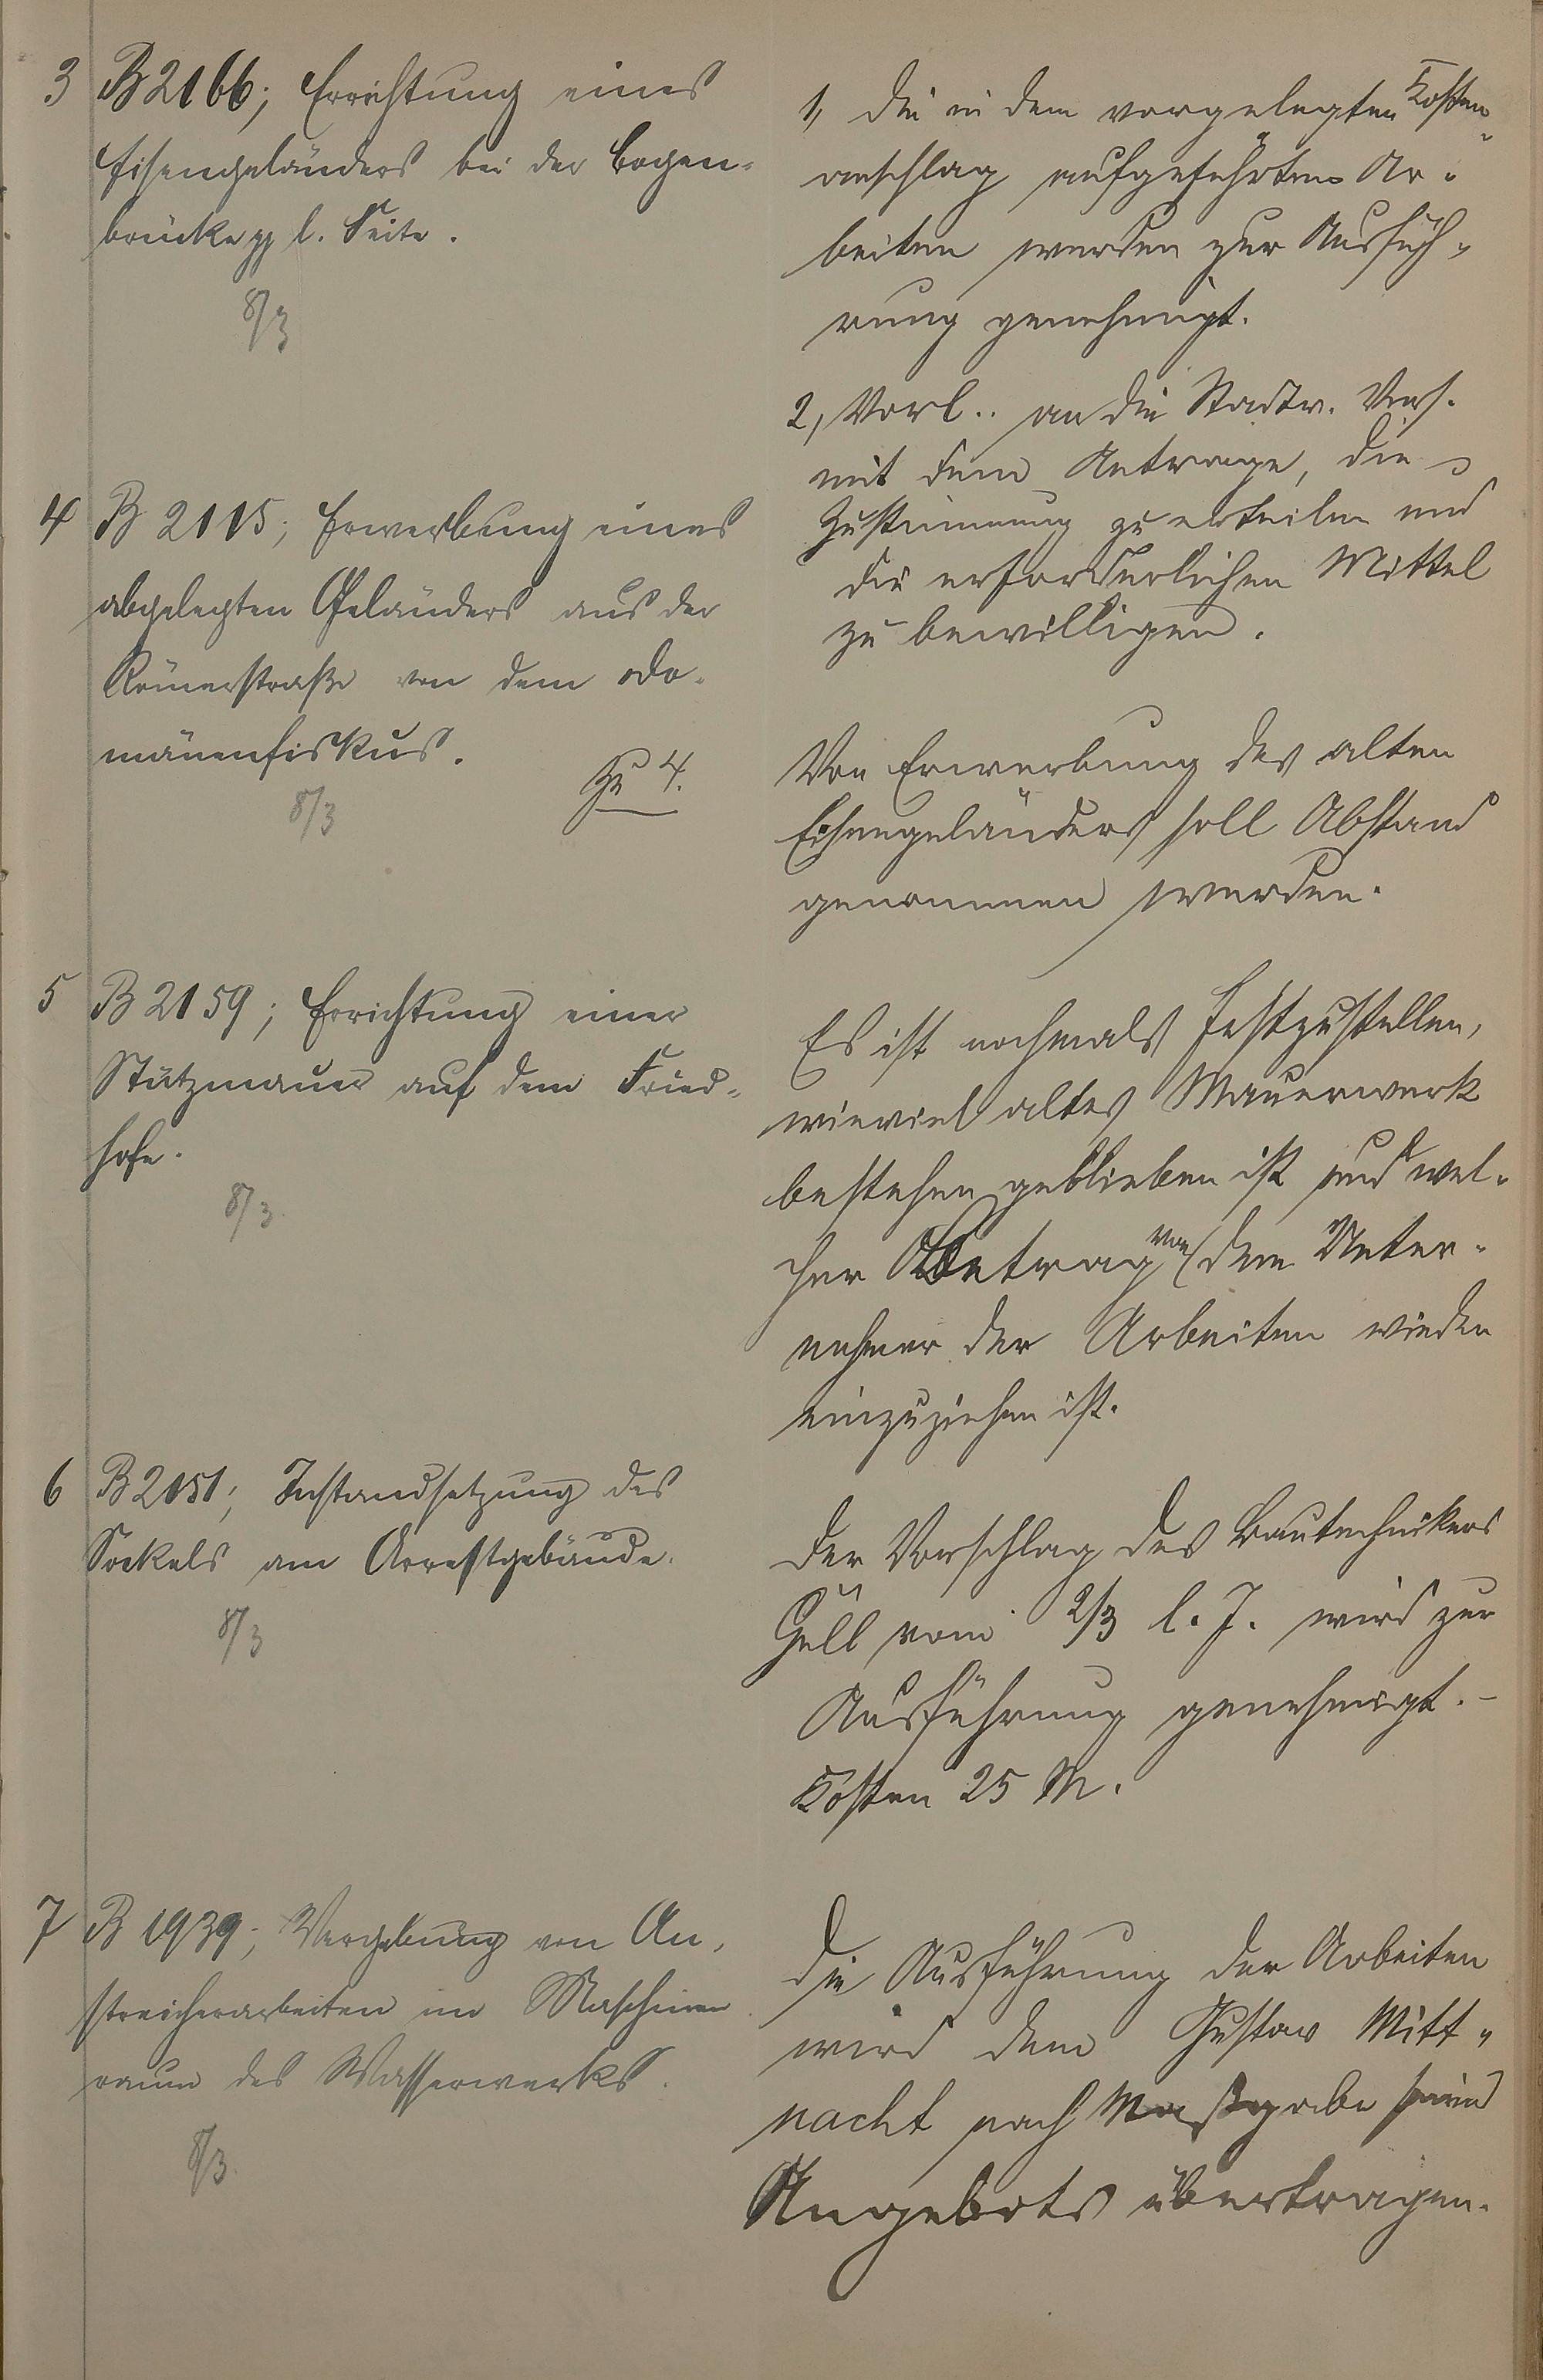 3 B 2166; Errichtung eines
Eisengeländers bei der Bogen-
brücke l. Seite.
8/3
1, Die in dem vorgelegten Kosten-
anschlag aufgeführten Ar-
beiten werden zur Ausfüh-
rung genehmigt.
2, Vorl. an die Stadtv. Vers.
mit dem Antrage, die
Zustimmung zu erteilen und
die erforderlichen Mittel
zu bewilligen.
4 B 2115; Erwerbung eines
abgelegten Geländers aus der
Römerstraße von dem Do-
mänenfiskus.
8/3
Zu 4.
Von Erwerbung des alten
Eisengeländers soll Abstand
genommen werden.
5 B 2159; Errichtung einer
Stützmauer auf dem Fried-
hofe.
8/3
Es ist nochmals festzustellen,
wieviel altes Mauerwerk
bestehen geblieben ist und wel-
cher Betrag von dem Unter-
nehmer der Arbeiten wieder
einzuziehen ist.
6 B 2151; Instandsetzung des
Sockels am Arrestgebäude.
8/3
Der Vorschlag des Bautechnikers
Güll vom 2/3 l. J. wird zur
Ausführung genehmigt. –
Kosten 25 M.
7 B 1939; Vergebung von An-
streicherarbeiten im Maschinen-
raum des Wasserwerks.
8/3
Die Ausführung der Arbeiten
wird dem Gustav Mitt-
nacht nach Maßgabe seines
Angebots übertragen.